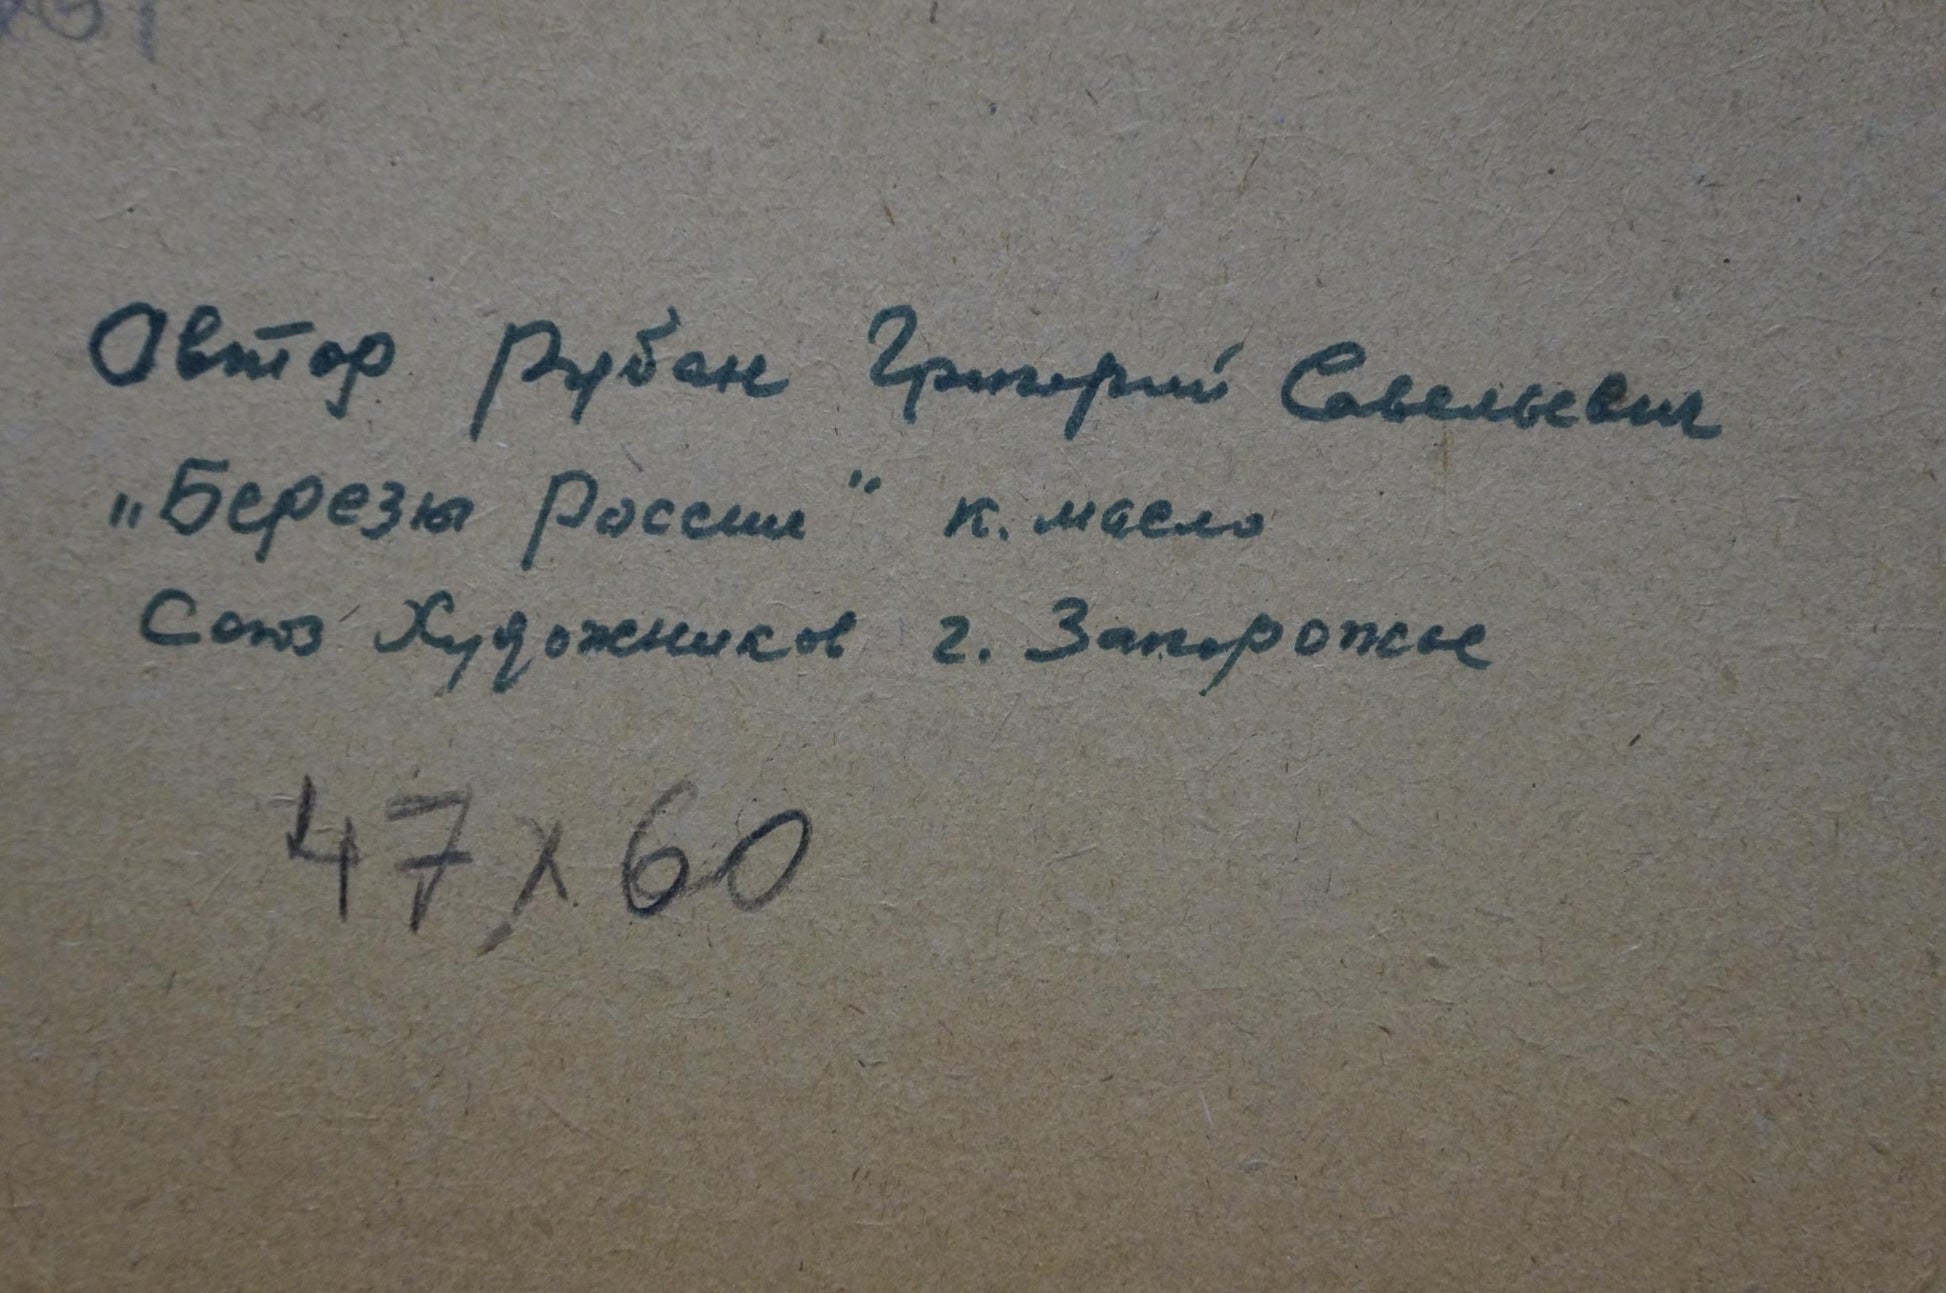 Автор Рубан Григорий Савельевич
„Березы России" к. масло
Союз Художников г. Запорожье
47x60